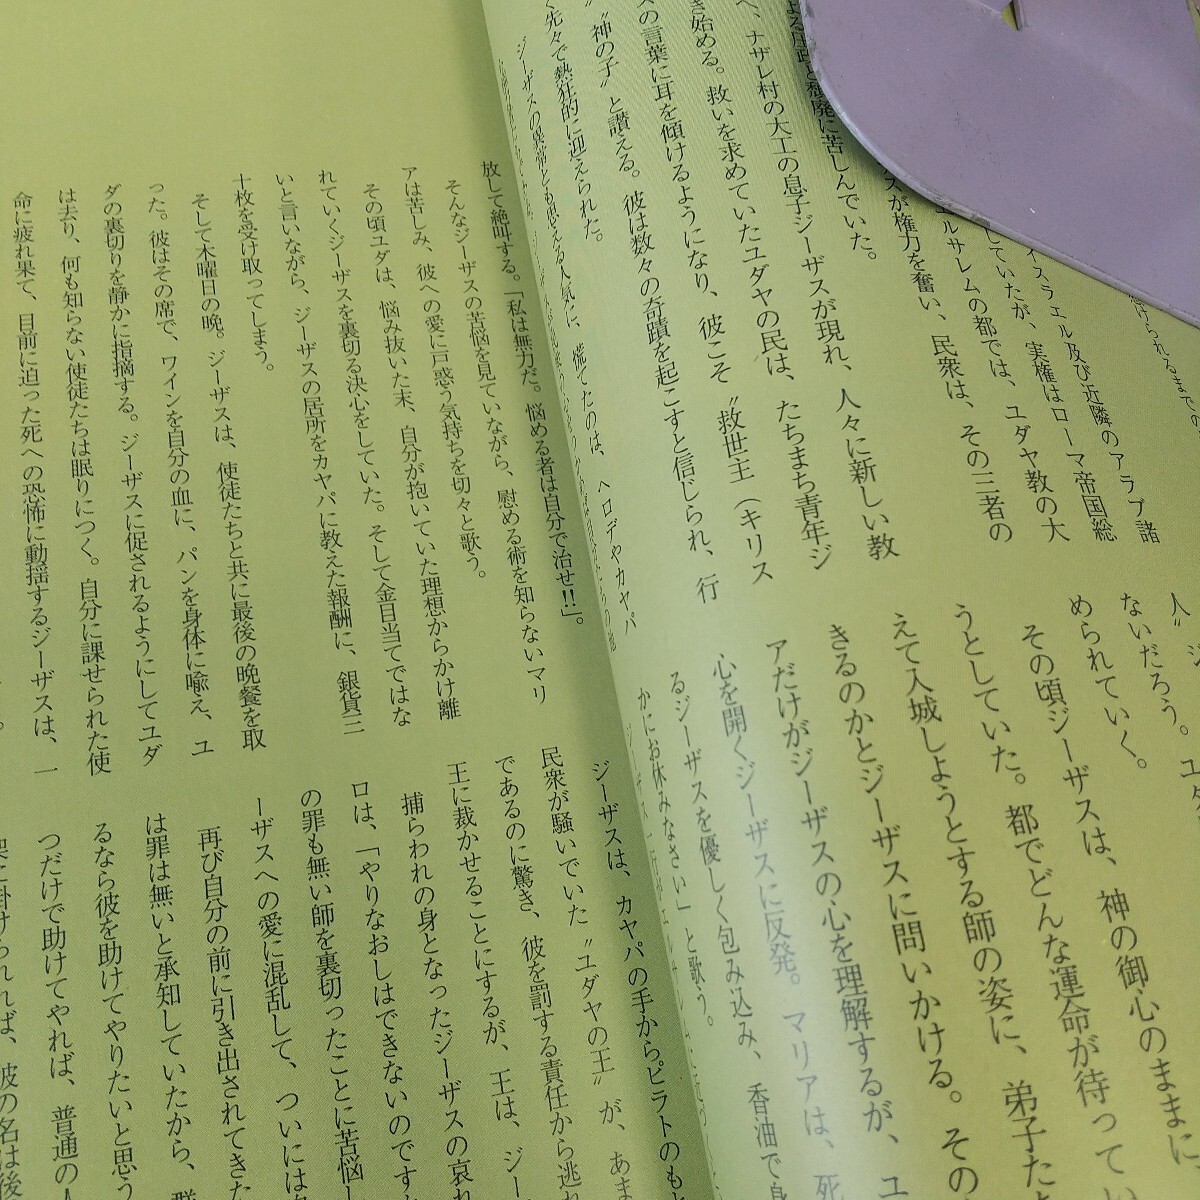 イスラエル及び近隣のアラブ諸
していたが、実権はローマ帝国総
エルサレムの都では、ユダヤ教の大
スが権力を奮い、民衆は、その三者の
廃に苦しんでいた。
へ、ナザレ村の大工の息子ジーザスが現れ、人々に新しい教
き始める。救いを求めていたユダヤの民は、たちまち青年ジ
スの言葉に耳を傾けるようになり、彼こそ〝救世主（キリス
〝神の子〟と讃える。彼は数々の奇蹟を起こすと信じられ、行
く先々で熱狂的に迎えられた。
ジーザスの異常とも思える人気に、慌てたのは、ヘロデやカヤパ
人〟ジ
ないだろう。ユダ
められていく。
その頃ジーザスは、神の御心のままに
うとしていた。都でどんな運命が待ってい
えて入城しようとする師の姿に、弟子た
きるのかとジーザスに問いかける。その
アだけがジーザスの心を理解するが、ユ
心を開くジーザスに反発。マリアは、死
るジーザスを優しく包み込み、香油で身
かにお休みなさい」と歌う。
放して絶叫する。「私は無力だ。悩める者は自分で治せ!!」。
そんなジーザスの苦悩を見ていながら、慰める術を知らないマリ
アは苦しみ、彼への愛に戸惑う気持ちを切々と歌う。
その頃ユダは、悩み抜いた末、自分が抱いていた理想からかけ離
れていくジーザスを裏切る決心をしていた。そして金目当てではな
いと言いながら、ジーザスの居所をカヤパに教えた報酬に、銀貨三
十枚を受け取ってしまう。
そして木曜日の晩。ジーザスは、使徒たちと共に最後の晩餐を取
った。彼はその席で、ワインを自分の血に、パンを身体に喩え、ユ
ダの裏切りを静かに指摘する。ジーザスに促されるようにしてユダ
は去り、何も知らない使徒たちは眠りにつく。自分に課せられた使
命に疲れ果て、目前に迫った死への恐怖に動揺するジーザスは、一
ジーザスは、カヤパの手からピラトのもと
民衆が騒いでいた〝ユダヤの王〟が、あま
であるのに驚き、彼を罰する責任から逃れ
王に裁かせることにするが、王は、ジー
捕らわれの身となったジーザスの哀れ
ロは、「やりなおしはできないのですか
の罪も無い師を裏切ったことに苦悩し
ーザスへの愛に混乱して、ついには
再び自分の前に引き出されてきた
は罪は無いと承知していたから、群
るなら彼を助けてやりたいと思う
つだけで助けてやれば、普通の人
架に掛けられれば、彼の名は後